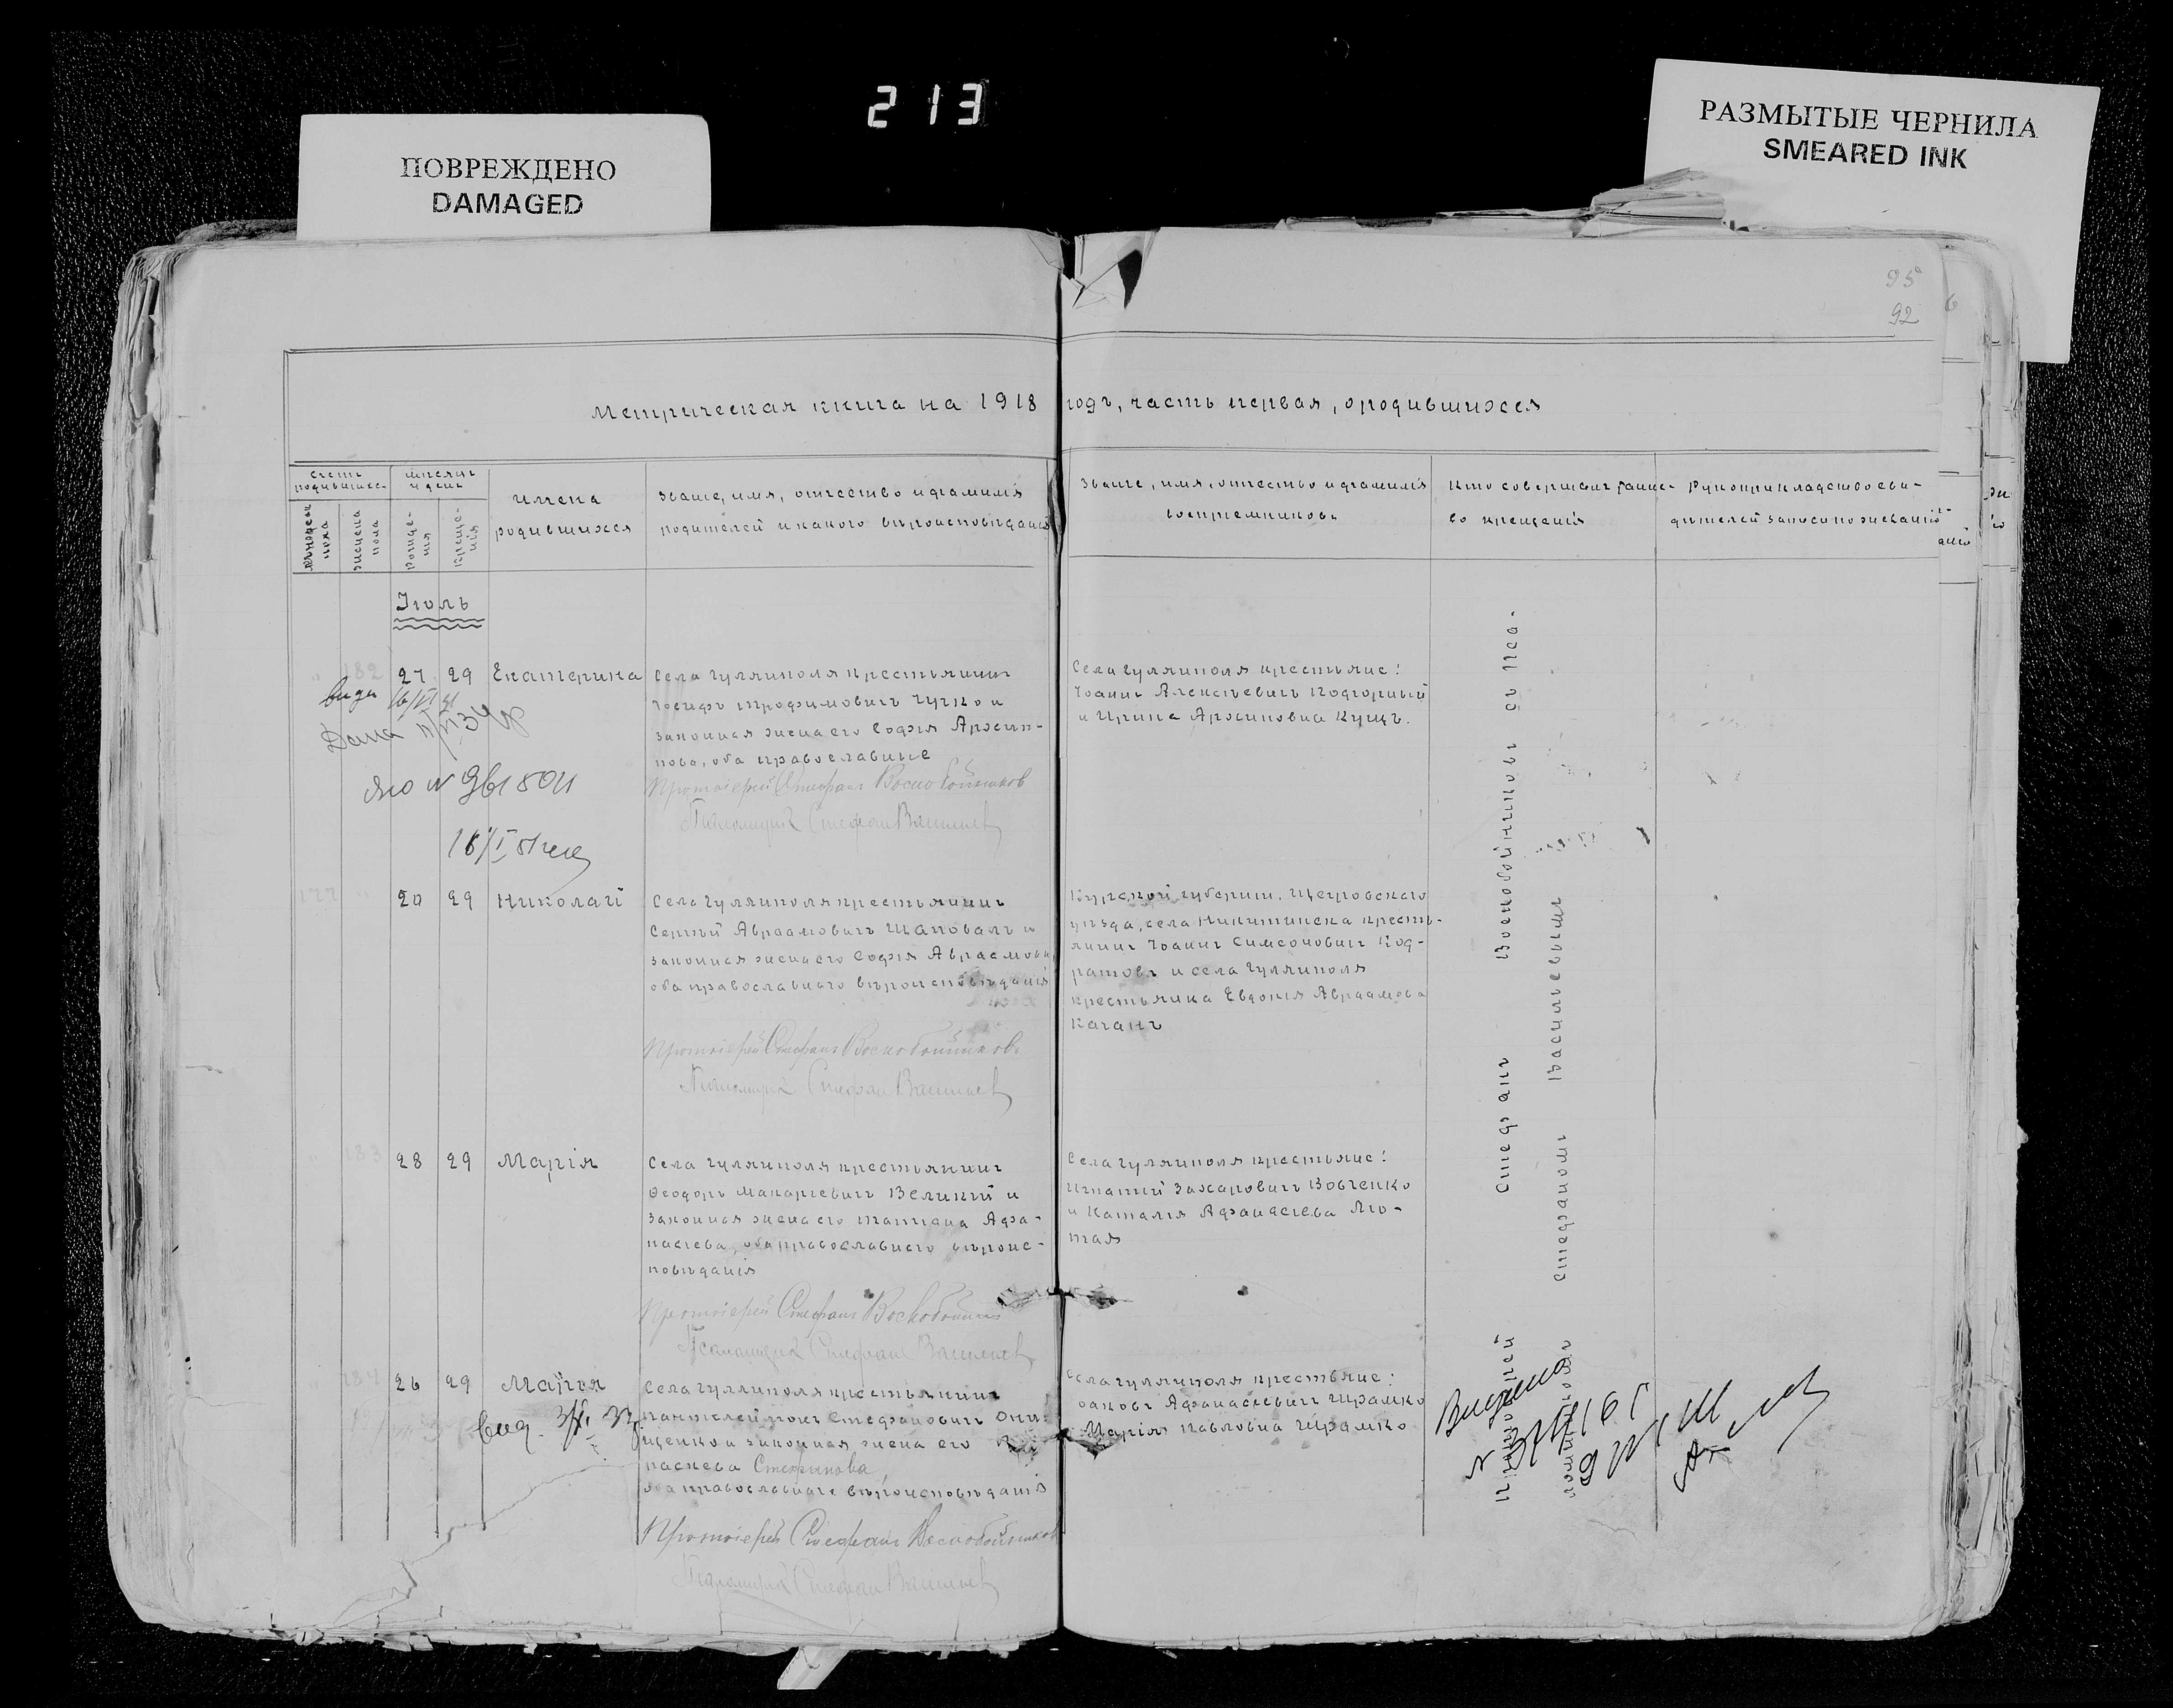 213
ПОВРЕЖДЕНО
DAMAGED
РАЗМЫТЫЕ ЧЕРНИЛА
SMEARED INK
95
92
Метрическая книга на 1918 годъ, часть первая, о родившихся
Счетъ родившихся
Мѣсяцъ и день
Имена
родившихся
Званіе, имя, отчество и фамилія
родителей и какого вѣроисповѣданія
Званіе, имя, отчество и фамилія
воспріемниковъ
Кто совершалъ таинс-
во крещенія
Рукоприкладство сви-
дѣтелей записи по желанію
мужеска
пола
женска
пола
рожде-
нія
креще-
нія
Іюль
182 27 29 Екатерина
Села Гуляйполя крестьянинъ
Іосифъ Трофимовичъ Чучко и
законная жена его Софія Архип-
пова, оба православные
Протоіерей Стефанъ Воскобойников
Псаломщикъ Стефан Васильев
Села Гуляйполя крестьяне:
Іоаннъ Алексѣевичъ Подгорный
и Ирина Архиповна Кущъ.
177 20 29 Николай
Села Гуляйполя крестьянинъ
Сергий Авраамовичъ Шаповалъ и
законная жена его Софія Авраамова,
оба православнаго вѣроисповѣданія
Протоіерей Стефанъ Воскобойниковъ
Псаломщикъ Стефан Васильев
Курской губерніи, Щегровскаго
уѣзда, села Никитинска кресть-
янинъ Іоаннъ Симеоновичъ Код-
ратовъ и села Гуляйполя
крестьянка Евдокія Авраамова
Каганъ
183 28 29 Марія
Села Гуляйполя крестьянинъ
Феодоръ Макаріевичъ Великій и
законная жена его Татіана Афа-
насіева, оба православнаго вѣроис-
повѣданія
Протоіерей Стефанъ Воскобойник
Псаломщикъ Стефан Васильев
Села Гуляйполя крестьяне:
Игнатій Захаровичъ Вовченко
и Наталія Афанасіева Лю-
тая
184 26 29 Марія
Села Гуляйполя крестьянинъ
Пантелеймонъ Стефановичъ Они-
щенко и законная жена его
Стефанова,
оба православнаго вѣроисповѣданія
Протоіерей Стефанъ Воскобойников
Псаломщикъ Стефан Васильев
Села Гуляйполя крестьяне:
Іаковъ Афанасіевичъ Шрамко
Марія Павловна Шрамко
Протоіерей Стефанъ Воскобойниковъ съ Пса-
ломщикомъ Стефаномъ Васильевымъ